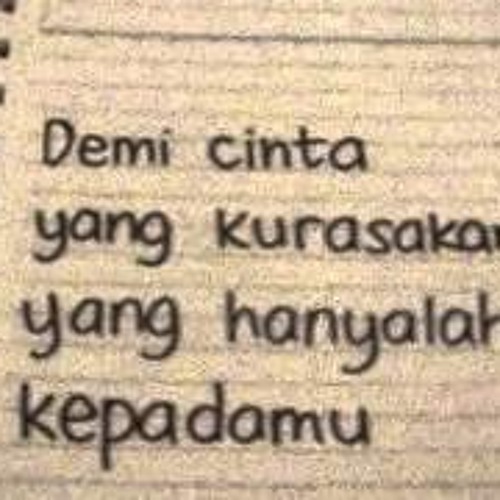 Demi cinta
yang kurasakan
yang hanyalah
kepadamu